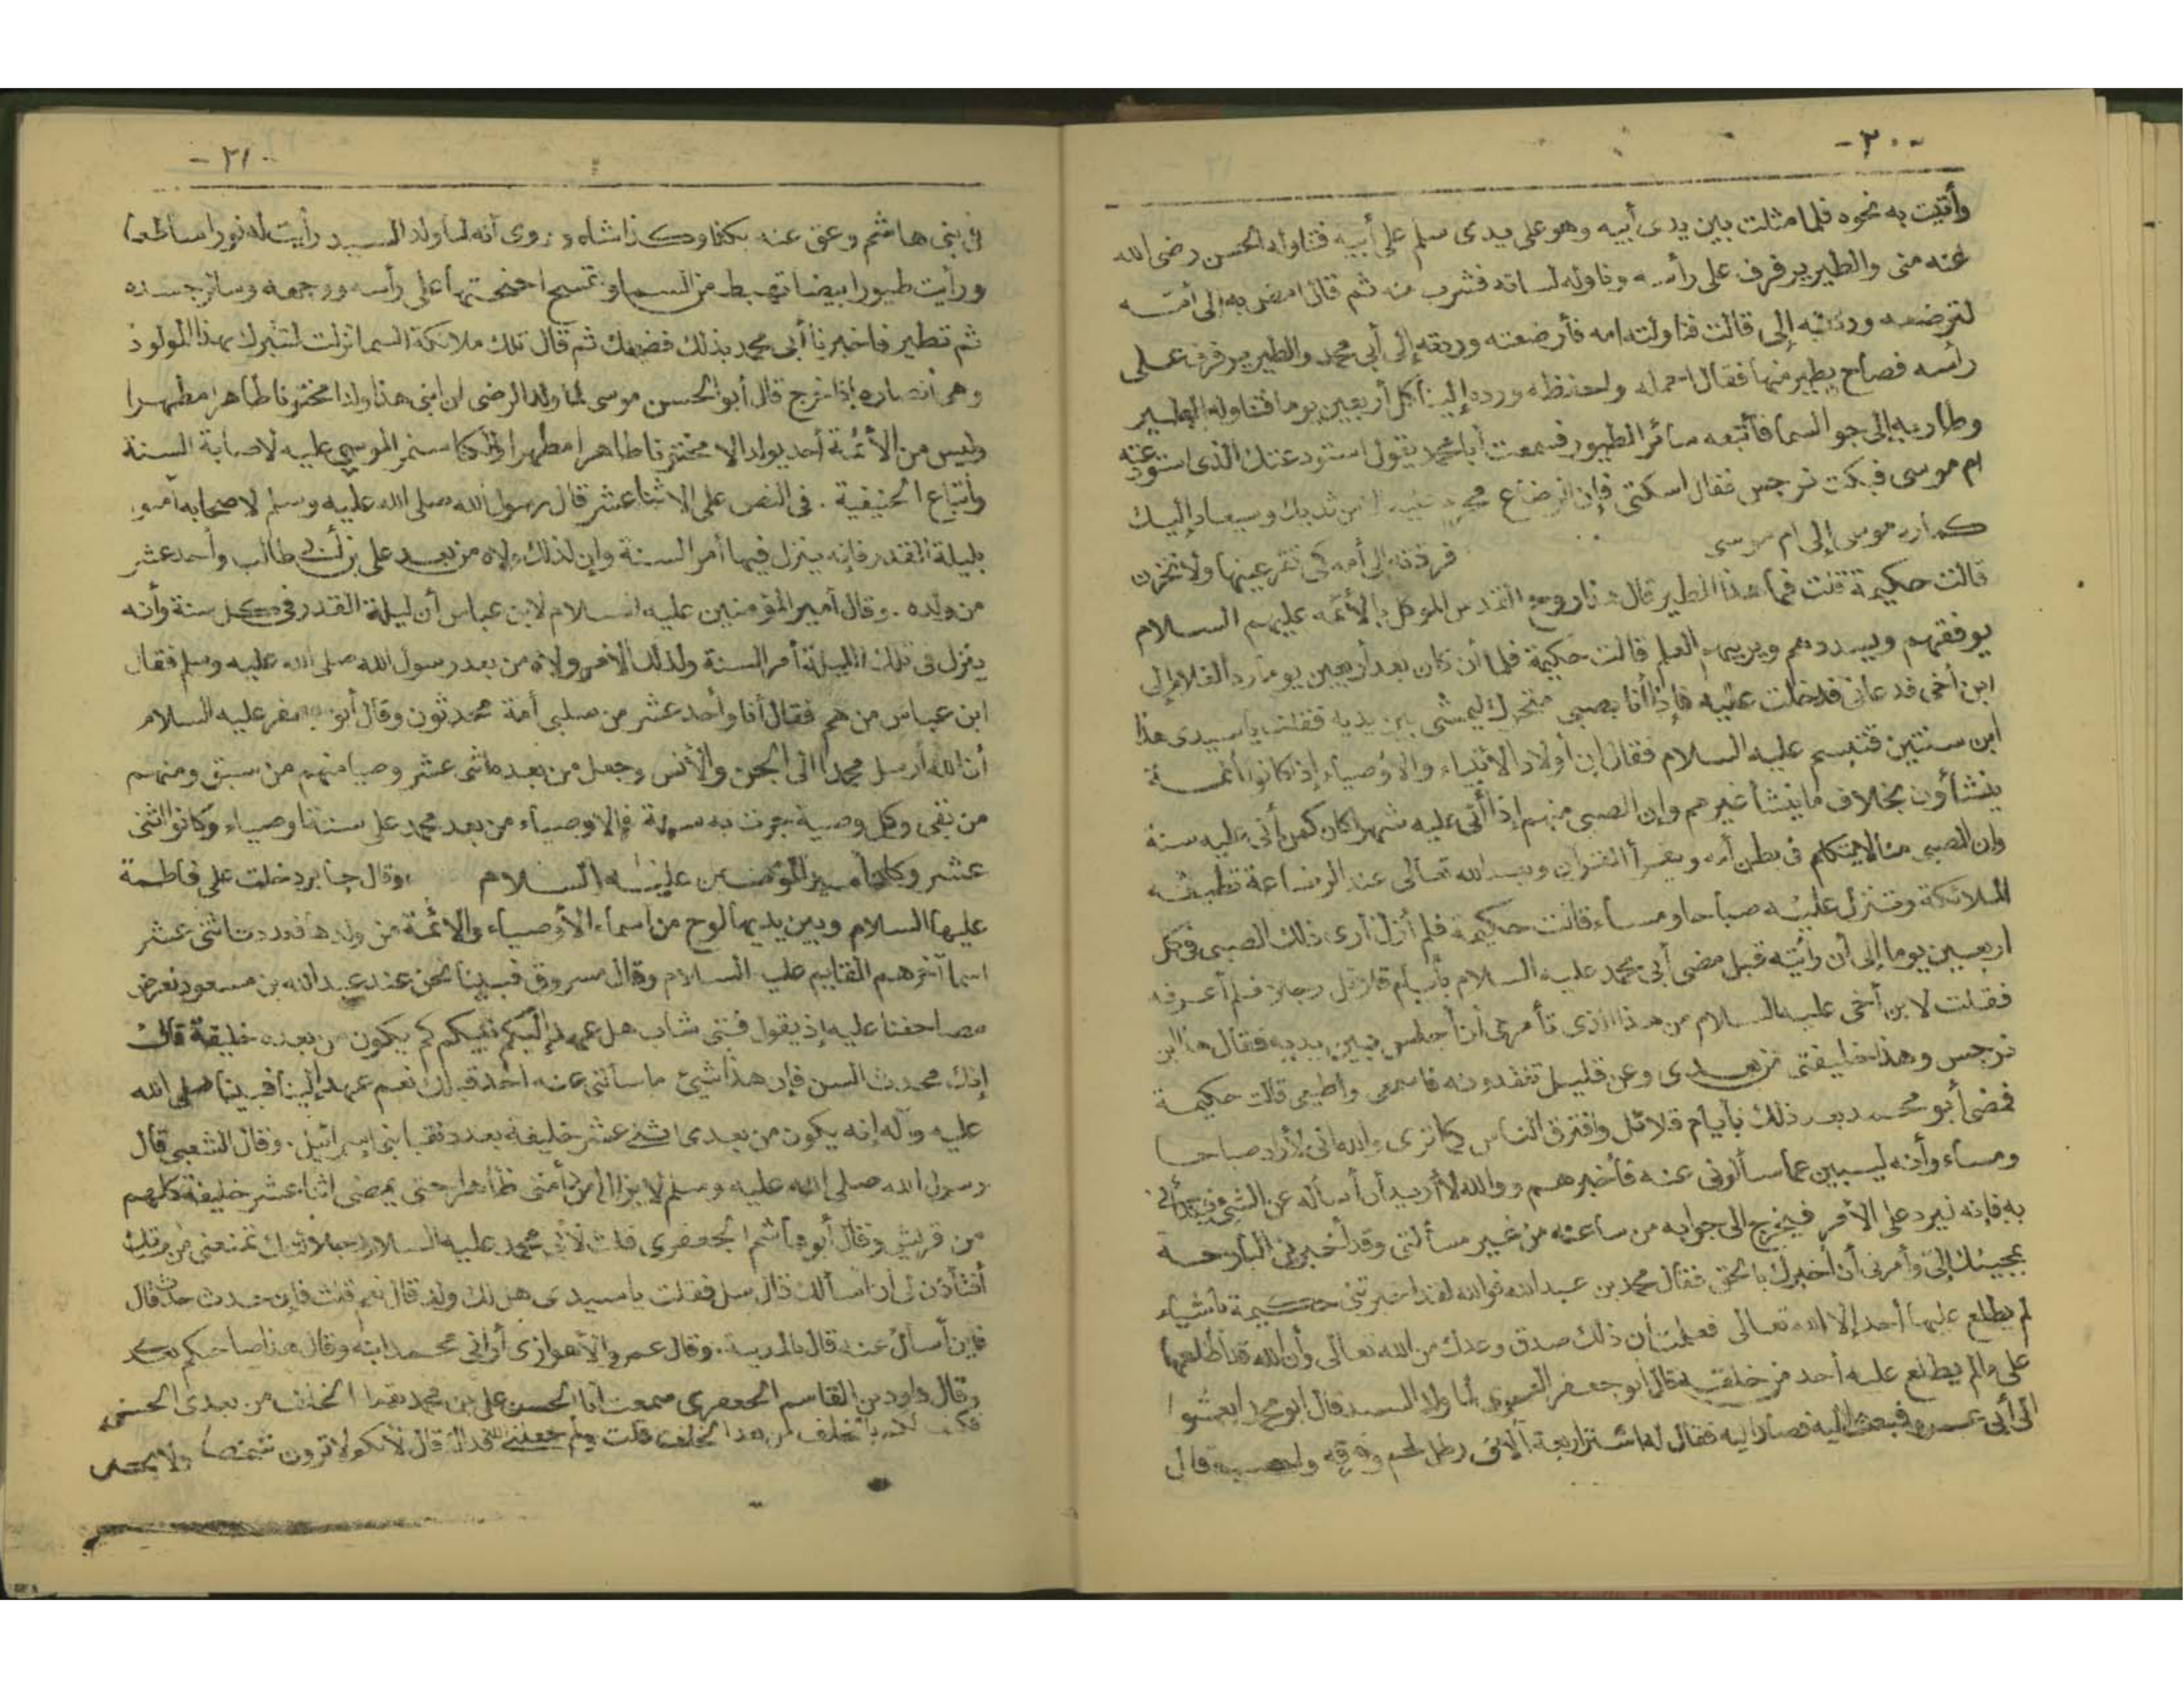 -٢٠-
وأتيت به نحوه فلما مثلت بين يدى أبيه وهو على يدى سلم على أبيه فتناوله الحسن رضى الله
عنه منى والطير يرفرف على رأسه وناوله لسانه فشرب منه ثم قال امضى به إلى أمه
لترضعه ورديه إلى قالت فناولته امه فأرضعته ورديته إلى أبى محمد والطير يرفرف على
رأسه فصاح بطير منها فقال احمله واحفظه ورده إلينا كل أربعين يوما فتناوله الطير
وطار به إلى جو السما فأتبعه سائر الطيور فسمعت أبا محمد يقول استودعتك الذى استودعته
ام موسى فبكت نرجس فقال اسكتى فإن الرضاع محرم عليه الا من ثديك وسيعاد إليك
كما رد موسى إلى ام موسى فرددناه إلى أمه كى تقر عينها ولا تحزن
قالت حكيمة قلت فما هذا الطير قال هذا روح القدس الموكل بالأئمه عليهم السلام
يوفقهم ويسددهم ويربيهم العلم قالت حكيمة فلما أن كان بعد أربعين يوما رد الغلام إلى
ابن أخى فدعانى فدخلت عليه فإذا أنا بصبى متحرك يمشى بين يديه فقلت يا سيدى هذا
ابن سنتين فتبسم عليه السلام فقال إن أولاد الأنبياء والأوصياء إذا كانوا أئمة
ينشأون بخلاف ما ينشأ غيرهم وإن الصبى منهم إذا أتى عليه شهر كان كمن أتى عليه سنة
وإن الصبى منا ليتكلم فى بطن أمه ويقرأ القرآن ويعبد الله تعالى عند الرضاعة تطيفه
الملائكة وتنزل عليه صباحا ومساء قالت حكيمة فلم أزل أرى ذلك الصبى فى كل
اربعين يوما إلى أن رأيته قبل مضى أبى محمد عليه السلام بأيام قلائل رجلا فلم أعرفه
فقلت لابن أخى عليه السلام من هذا الذى تأمرنى أن أجلس بين يديه فقال هذا ابن
نرجس وهذا خليفتى من بعدى وعن قليل تفقدونه فاسمعى وأطيعى قالت حكيمة
فمضى أبو محمد بعد ذلك بأيام قلائل وافترق الناس كما ترى والله انى لأراه صباحا
ومساء وأنه ليبين عما سألونى عنه فأخبرهم ووالله لا أريد أن أسأله عن الشئ فيبدأنى
به فإنه ليرد على الأمر فيخرج الى جوابه من ساعته من غير مسألتى وقد أخبرنى البارحة
بمجيئك إلى وأمرنى أن أخبرك بالحق فقال محمد بن عبد الله فوالله لقد اخبرتنى حكيمة باشياء
لم يطلع عليها أحد إلا الله تعالى فعلمت أن ذلك صدق وعدل من الله تعالى وأن الله قد أطلعها
على مالم يطلع عليه أحد من خلقه فقال أبو جعفر العمرى لما ولد السيد قال ابو محمد ابعثوا
الى أبى عمرو فبعث إليه فصار إليه فقال له اشتر اربعة آلاف رطل لحم وفرقه قال
-٢١-
فى بنى هاشم وعق عنه بكذا وكذا شاه وروى أنه لما ولد السيد رأيت له نورا ساطعا
ورأيت طيورا بيضا تهبط من السماء وتمسح اجنحتها على رأسه ووجهه وسائر جسده
ثم تطير فاخبرنا أبى محمد بذلك فضحك ثم قال تلك ملائكة السما نزلت لتتبرك بهذا المولود
وهى أنصاره إذا خرج قال أبو الحسن موسى لما ولد الرضى ان ابنى هذا ولد مختونا طاهرا مطهرا
وليس من الأئمة أحد يولد الا مختونا طاهرا مطهرا ولكنا سنمر الموسى عليه لاصابة السنة
وأتباع الحنيفية . فى النص على الاثنا عشر قال رسول الله صلى الله عليه وسلم لاصحابه آمنوا
بليلة القدر فإنه ينزل فيها أمر السنة وإن لذلك ولاة من بعد على بن أبى طالب وأحد عشر
من ولده . وقال أمير المؤمنين عليه السلام لابن عباس أن ليلة القدر فى كل سنة وأنه
ينزل فى تلك الليلة أمر السنة ولذلك الأمر ولاة من بعد رسول الله صلى الله عليه وسلم فقال
ابن عباس من هم فقال أنا وأحد عشر من صلبى أمة محدثون وقال أبو جعفر عليه السلام
أن الله أرسل محمدا الى الجن والأنس وجعل من بعده اثنى عشر وصيا منهم من سبق ومنهم
من بقى وكل وصية جرت به سنة فالاوصياء من بعد محمد على سنة اوصياء وكانوا اثنى
عشر وكان أمير المؤمنين عليه السلام ، وقال جابر دخلت على فاطمة
عليها السلام وبين يديها لوح من أسماء الأوصياء والائمة من ولدها فعددت اثنى عشر
اسما آخرهم القايم عليه السلام وقال مسروق فبينا نحن عند عبد الله بن مسعود نعرض
مصاحفنا عليه إذ يقول فتى شاب هل عهد إليكم نبيكم كم يكون من بعده خليفة قال
إنك محدث السن فإن هذا شئ ما سألنى عنه احد قبلك نعم عهد إلينا نبينا صلى الله
عليه وآله إنه يكون من بعدى اثنى عشر خليفة بعدد نقبا بنى إسرائيل . وقال الشعبى قال
رسول الله صلى الله عليه وسلم لا يزال أمر أمتى ظاهرا حتى يمضى اثنا عشر خليفة كلهم
من قريش وقال أبو هاشم الجعفرى قلت لأبى محمد عليه السلام جلالتك تمنعنى من مسألتك
أفتأذن لى أن أسألك قال سل فقلت يا سيدى هل لك ولد قال نعم قلت فإن حدث حدث
فإين أسأل عنه قال بالمدينة . وقال عمرو الأهوازى أرانى محمد ابنه وقال هذا صاحبكم بعدى
وقال داود بن القاسم الجعفرى سمعت أبا الحسن على بن محمد يقول الخلف من بعدى الحسن
فكيف لكم بالخلف من بعد الخلف قلت ولم جعلنى الله فداك قال لأنكم لا ترون شخصه ولا يحل